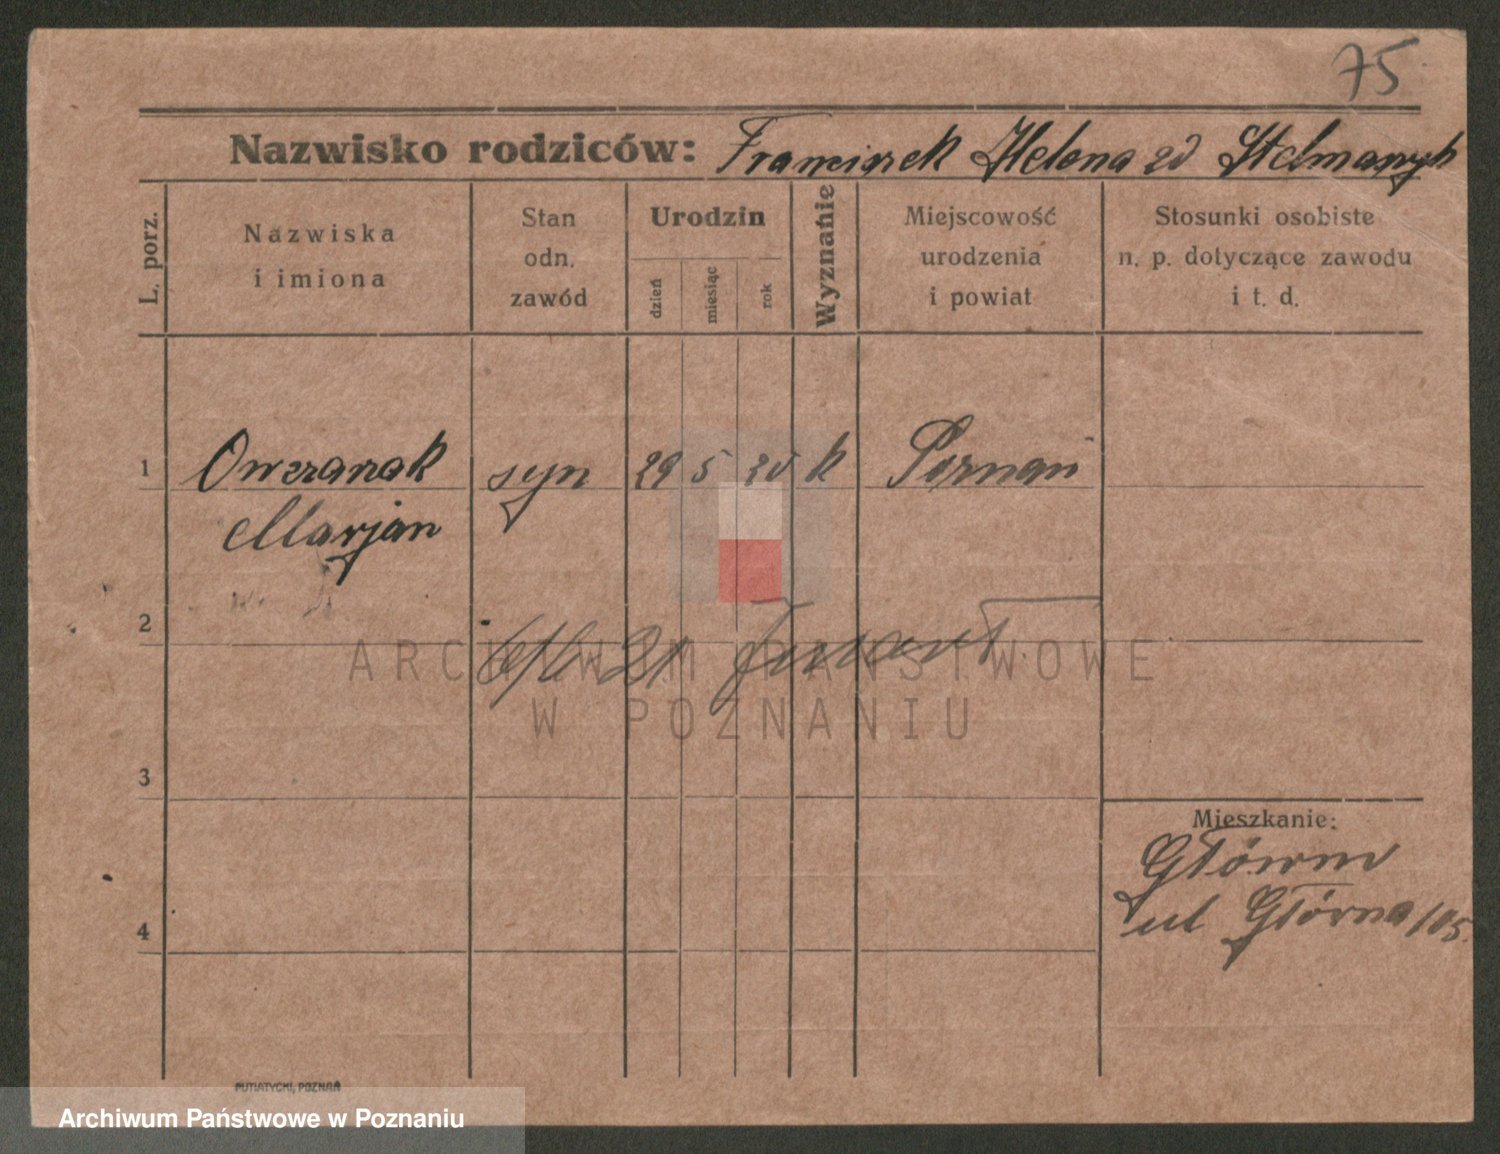 75
Nazwisko rodziców: Franciszek Helena zd
L. porz.
Nazwiska i imiona
Stan odn. zawód
Urodzin
dzień
miesiąc
rok
Wyznanie
Miejscowość urodzenia i powiat
Stosunki osobiste n. p. dotyczące zawodu i t. d.
1 Owczarzak syn 29 5 20 k Poznań
Marjan
2
6/6 21
ARCHIWUM PAŃSTWOWE
W POZNANIU
3
Mieszkanie:
Główno
ul Główna 105
4
PUTIATYCKI, POZNAŃ
Archiwum Państwowe w Poznaniu